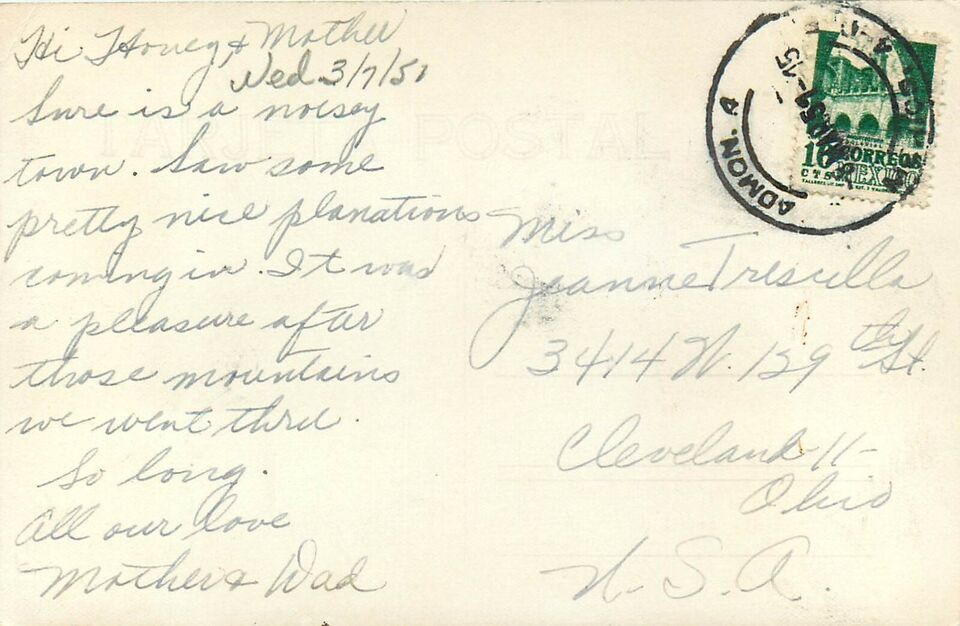 Hi Honey & Mother
Wed 3/7/51
Sure is a noisey
town. Saw some
pretty nice planations
coming in. It was
a pleasure after
those mountains
we went thru.
So long.
All our love
Mother & Dad
TARJETA POSTAL
ADMON. A
MAR 51 - 15
10
CTS
CORREOS
MEXICO
Miss
Jeanne Triscilla
3414 W. 129th St.
Cleveland-11-
Ohio
U.S.A.